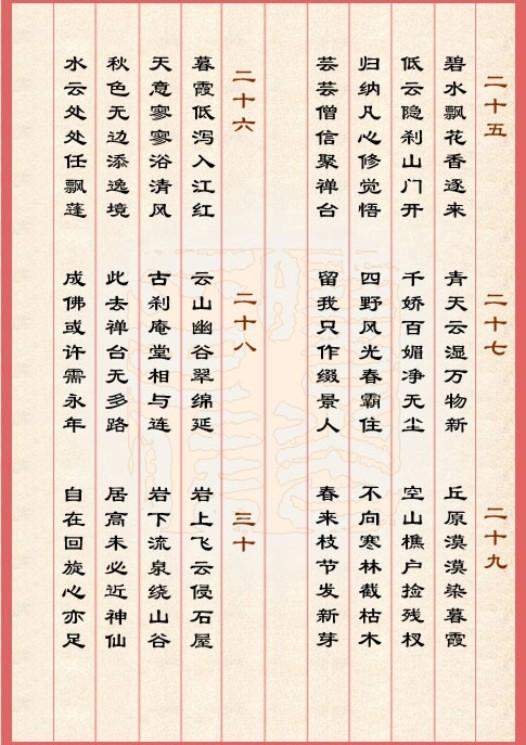 二十五
碧水飘花香逐来
低云隐刹山门开
归纳凡心修觉悟
芸芸僧信聚禅台
二十六
暮霞低泻入江红
天意寥寥浴清风
秋色无边添逸境
水云处处任飘蓬
二十七
青天云湿万物新
千娇百媚净无尘
四野风光春霸住
留我只作缀景人
二十八
云山幽谷翠绵延
古刹庵堂相与连
此去禅台无多路
成佛或许需永年
二十九
丘原漠漠染暮霞
空山樵户捡残杈
不向寒林截枯木
春来枝节发新芽
三十
岩上飞云侵石屋
岩下流泉绕山谷
居高未必近神仙
自在回旋心亦足